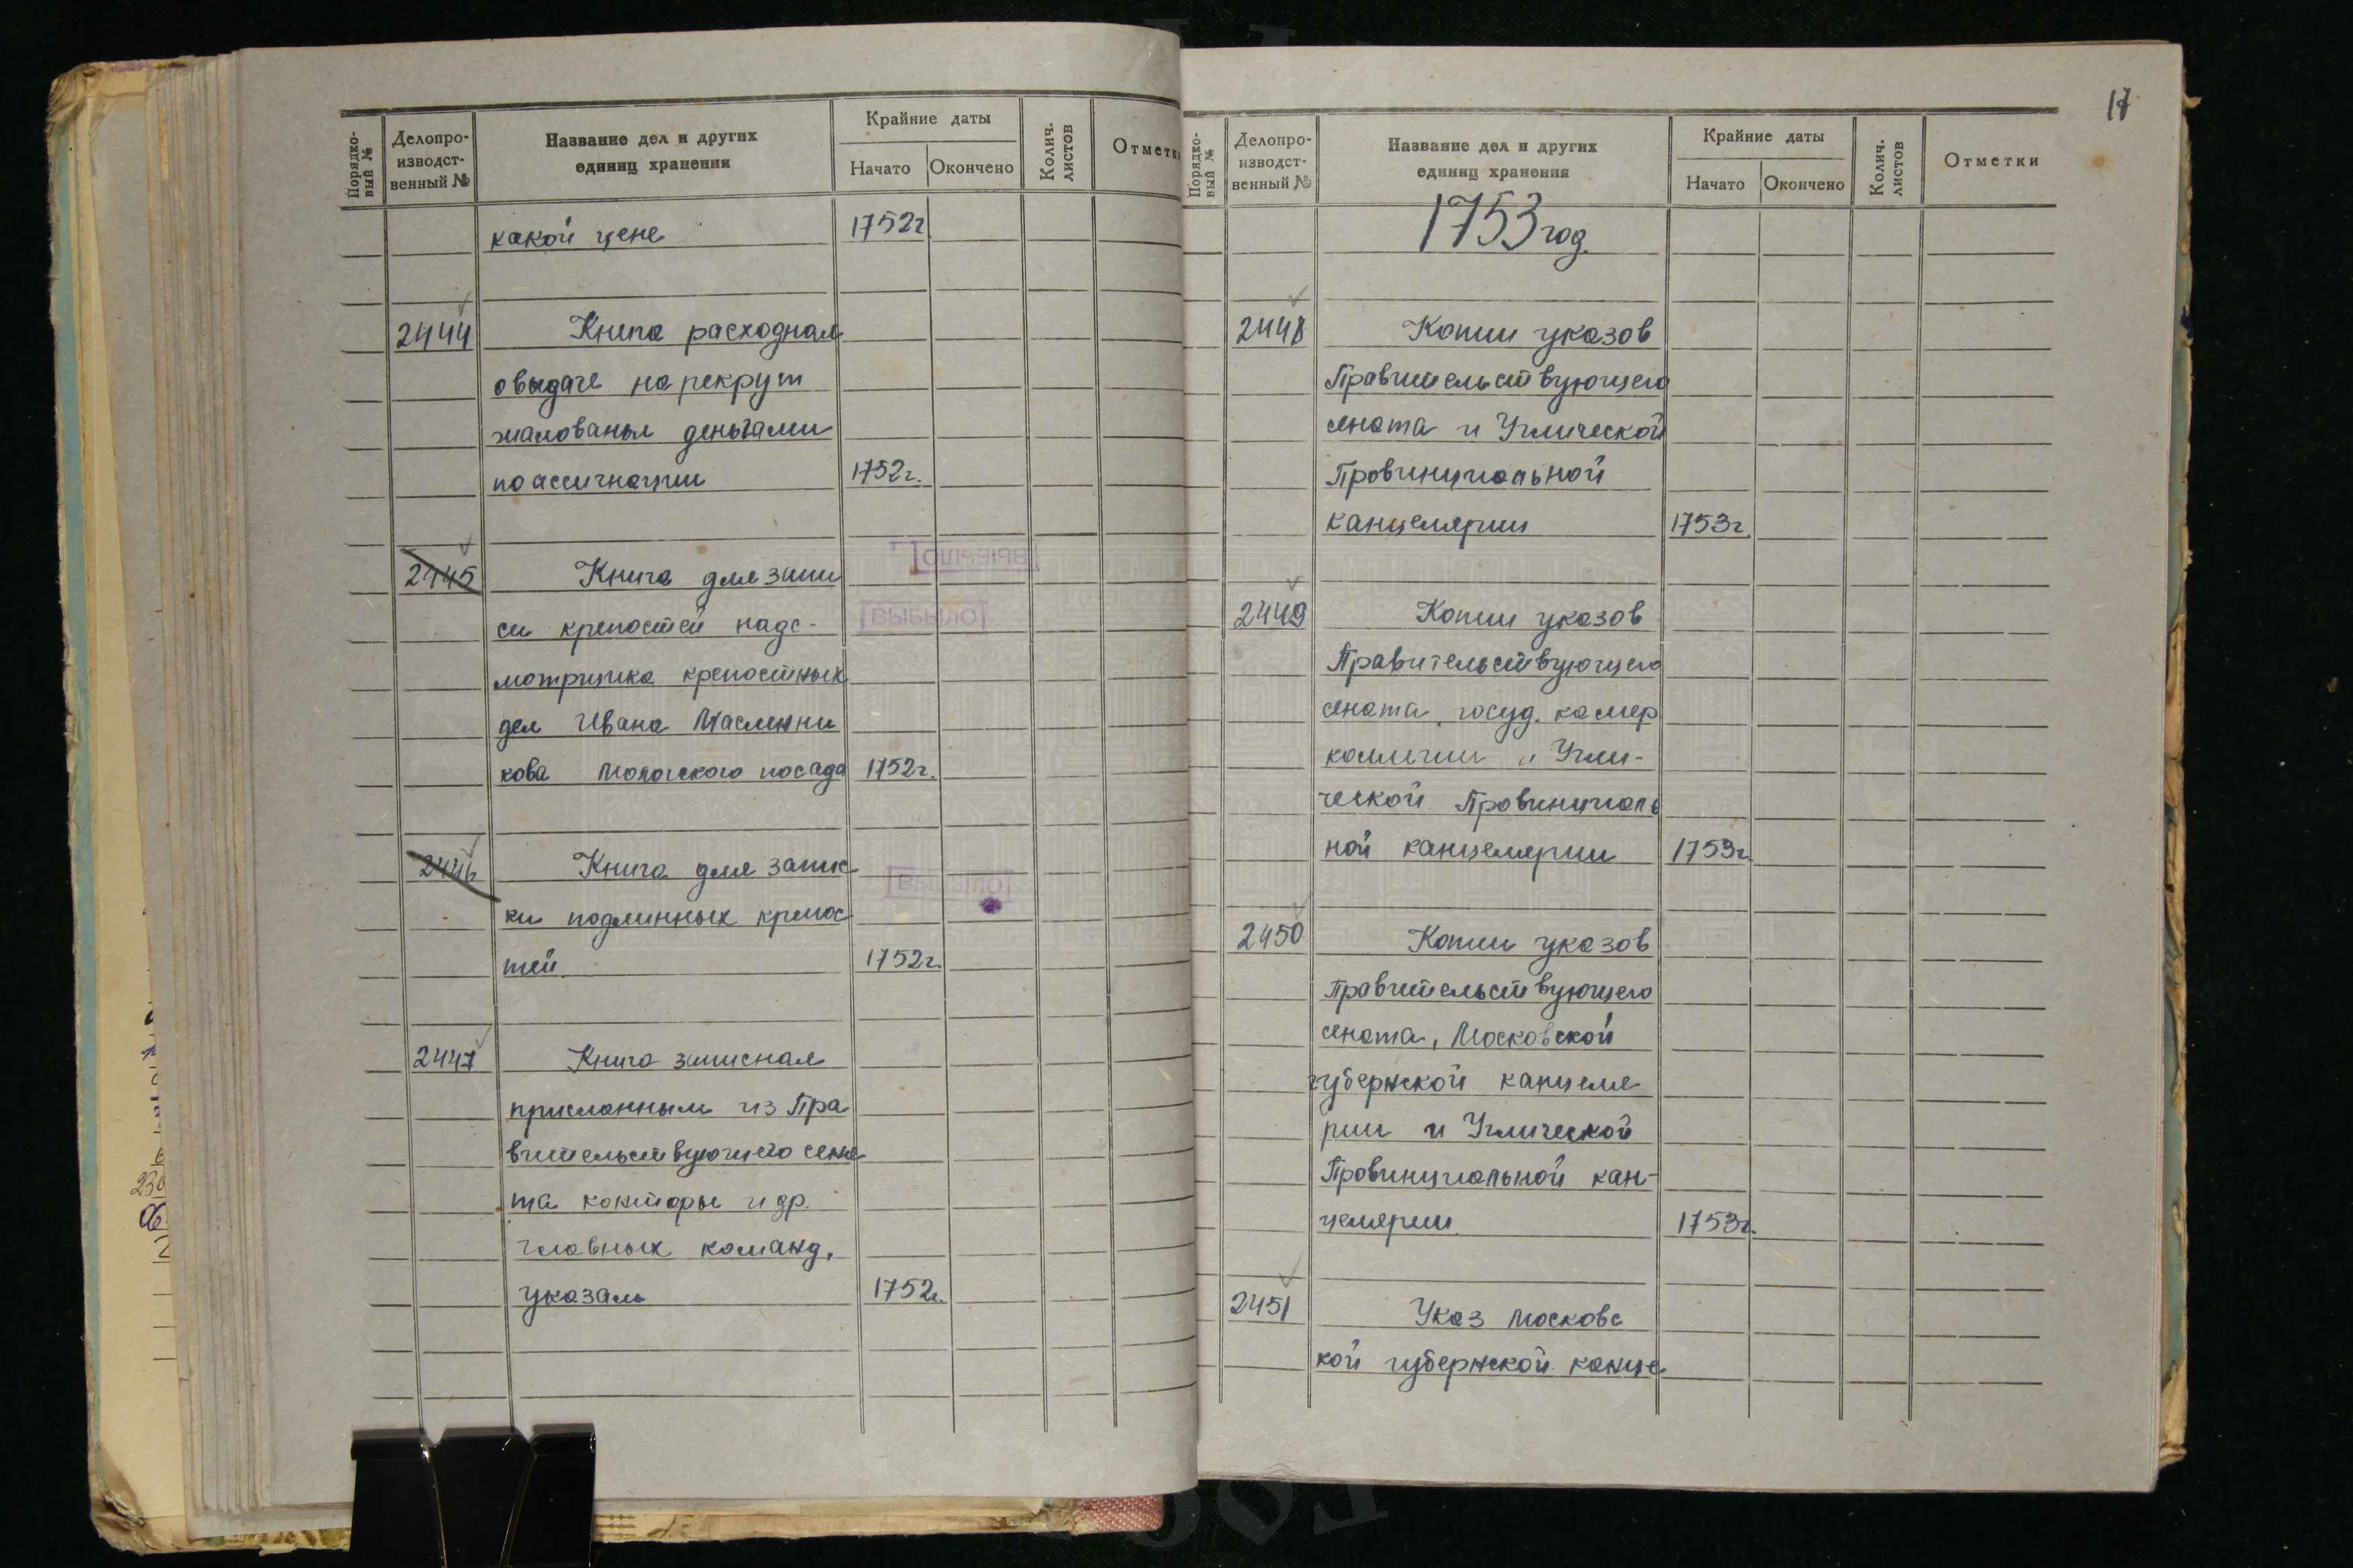 Порядко-
вый №
Делопро-
изводст-
венный №
Название дел и других
единиц хранения
Крайние даты
Начато
Окончено
Колич.
листов
Отметк
какой цене 1752г
2444 Книга расходная
о выдаче на рекрут
жалованья деньгами
по ассигнации 1752г.
2445 Книга для запи
си крепостей надс-
мотрщика крепостных
дел Ивана Масленни
кова Мологского посада 1752г.
2446 Книга для запис
ки подлинных крепос
тей 1752г.
2447 Книга записная
присланным из Пра
вительствующего сена
та конторы и др.
главных команд,
указам 1752г.
ВЫБЫЛО
ВЫБЫЛО
17
Порядко-
вый №
Делопро-
изводст-
венный №
Название дел и других
единиц хранения
Крайние даты
Начато
Окончено
Колич.
листов
Отметки
1753 год.
2448 Копии указов
Правительствующего
сената и Углической
Провинциальной
канцелярии 1753г.
2449 Копии указов
Правительствующего
сената, госуд. камер
коллегии и Угли-
ческой Провинциаль
ной канцелярии 1753г.
2450 Копии указов
Правительствующего
сената, Московской
губернской канцеля
рии и Углической
Провинциальной кан-
целярии 1753г.
2451 Указ Московс
кой губернской канце